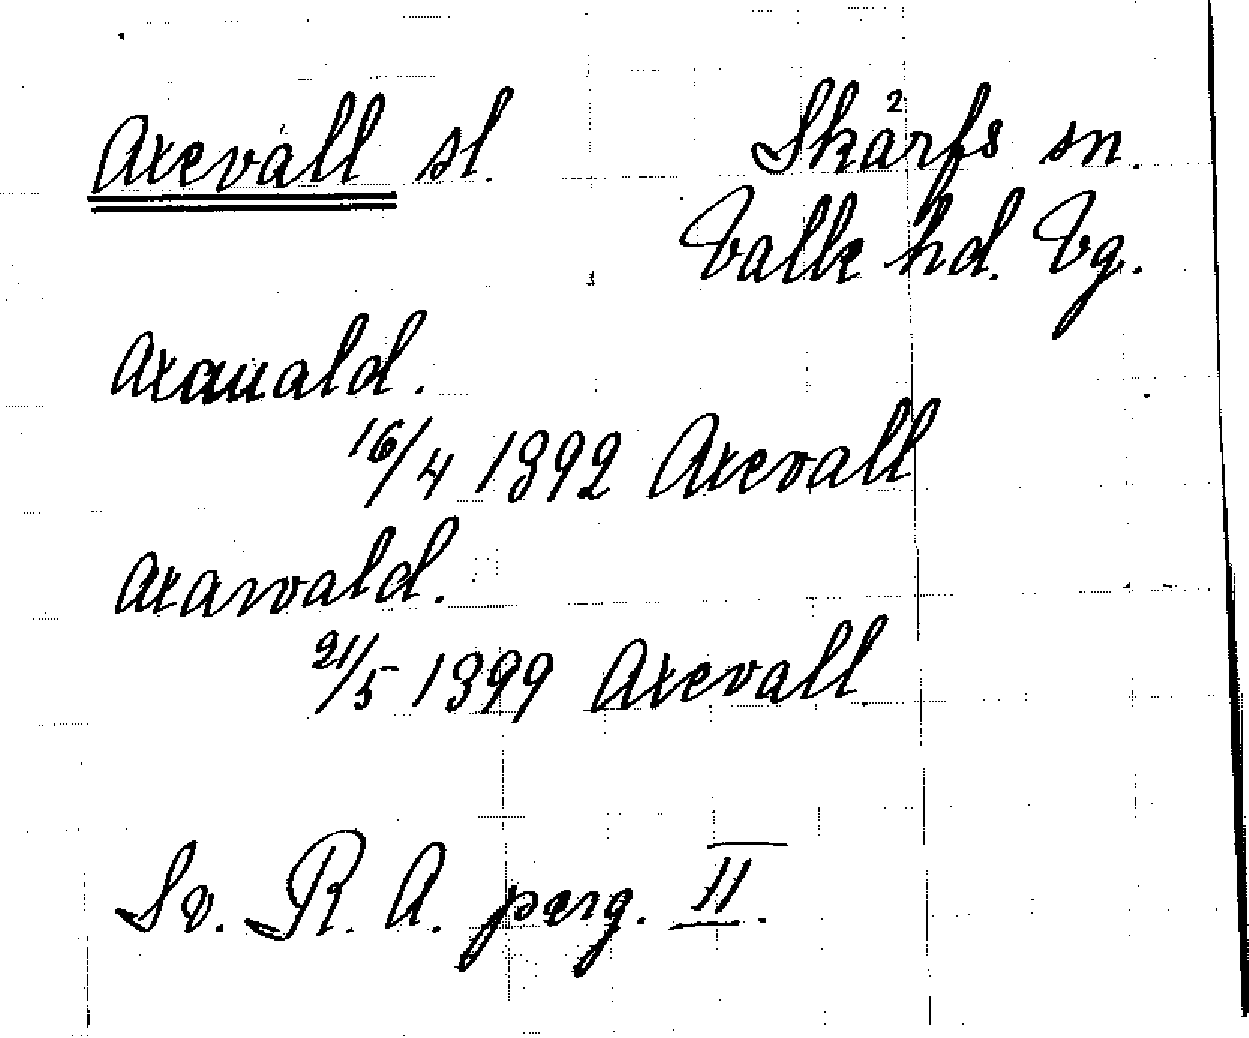 Axevall sl. Skärfs sn.
Valle hd. Vg.
Axauald.
16/4 1392 Axevall
Axarvald.
21/5 1399 Axevall
Sv. R. A. perg. II.